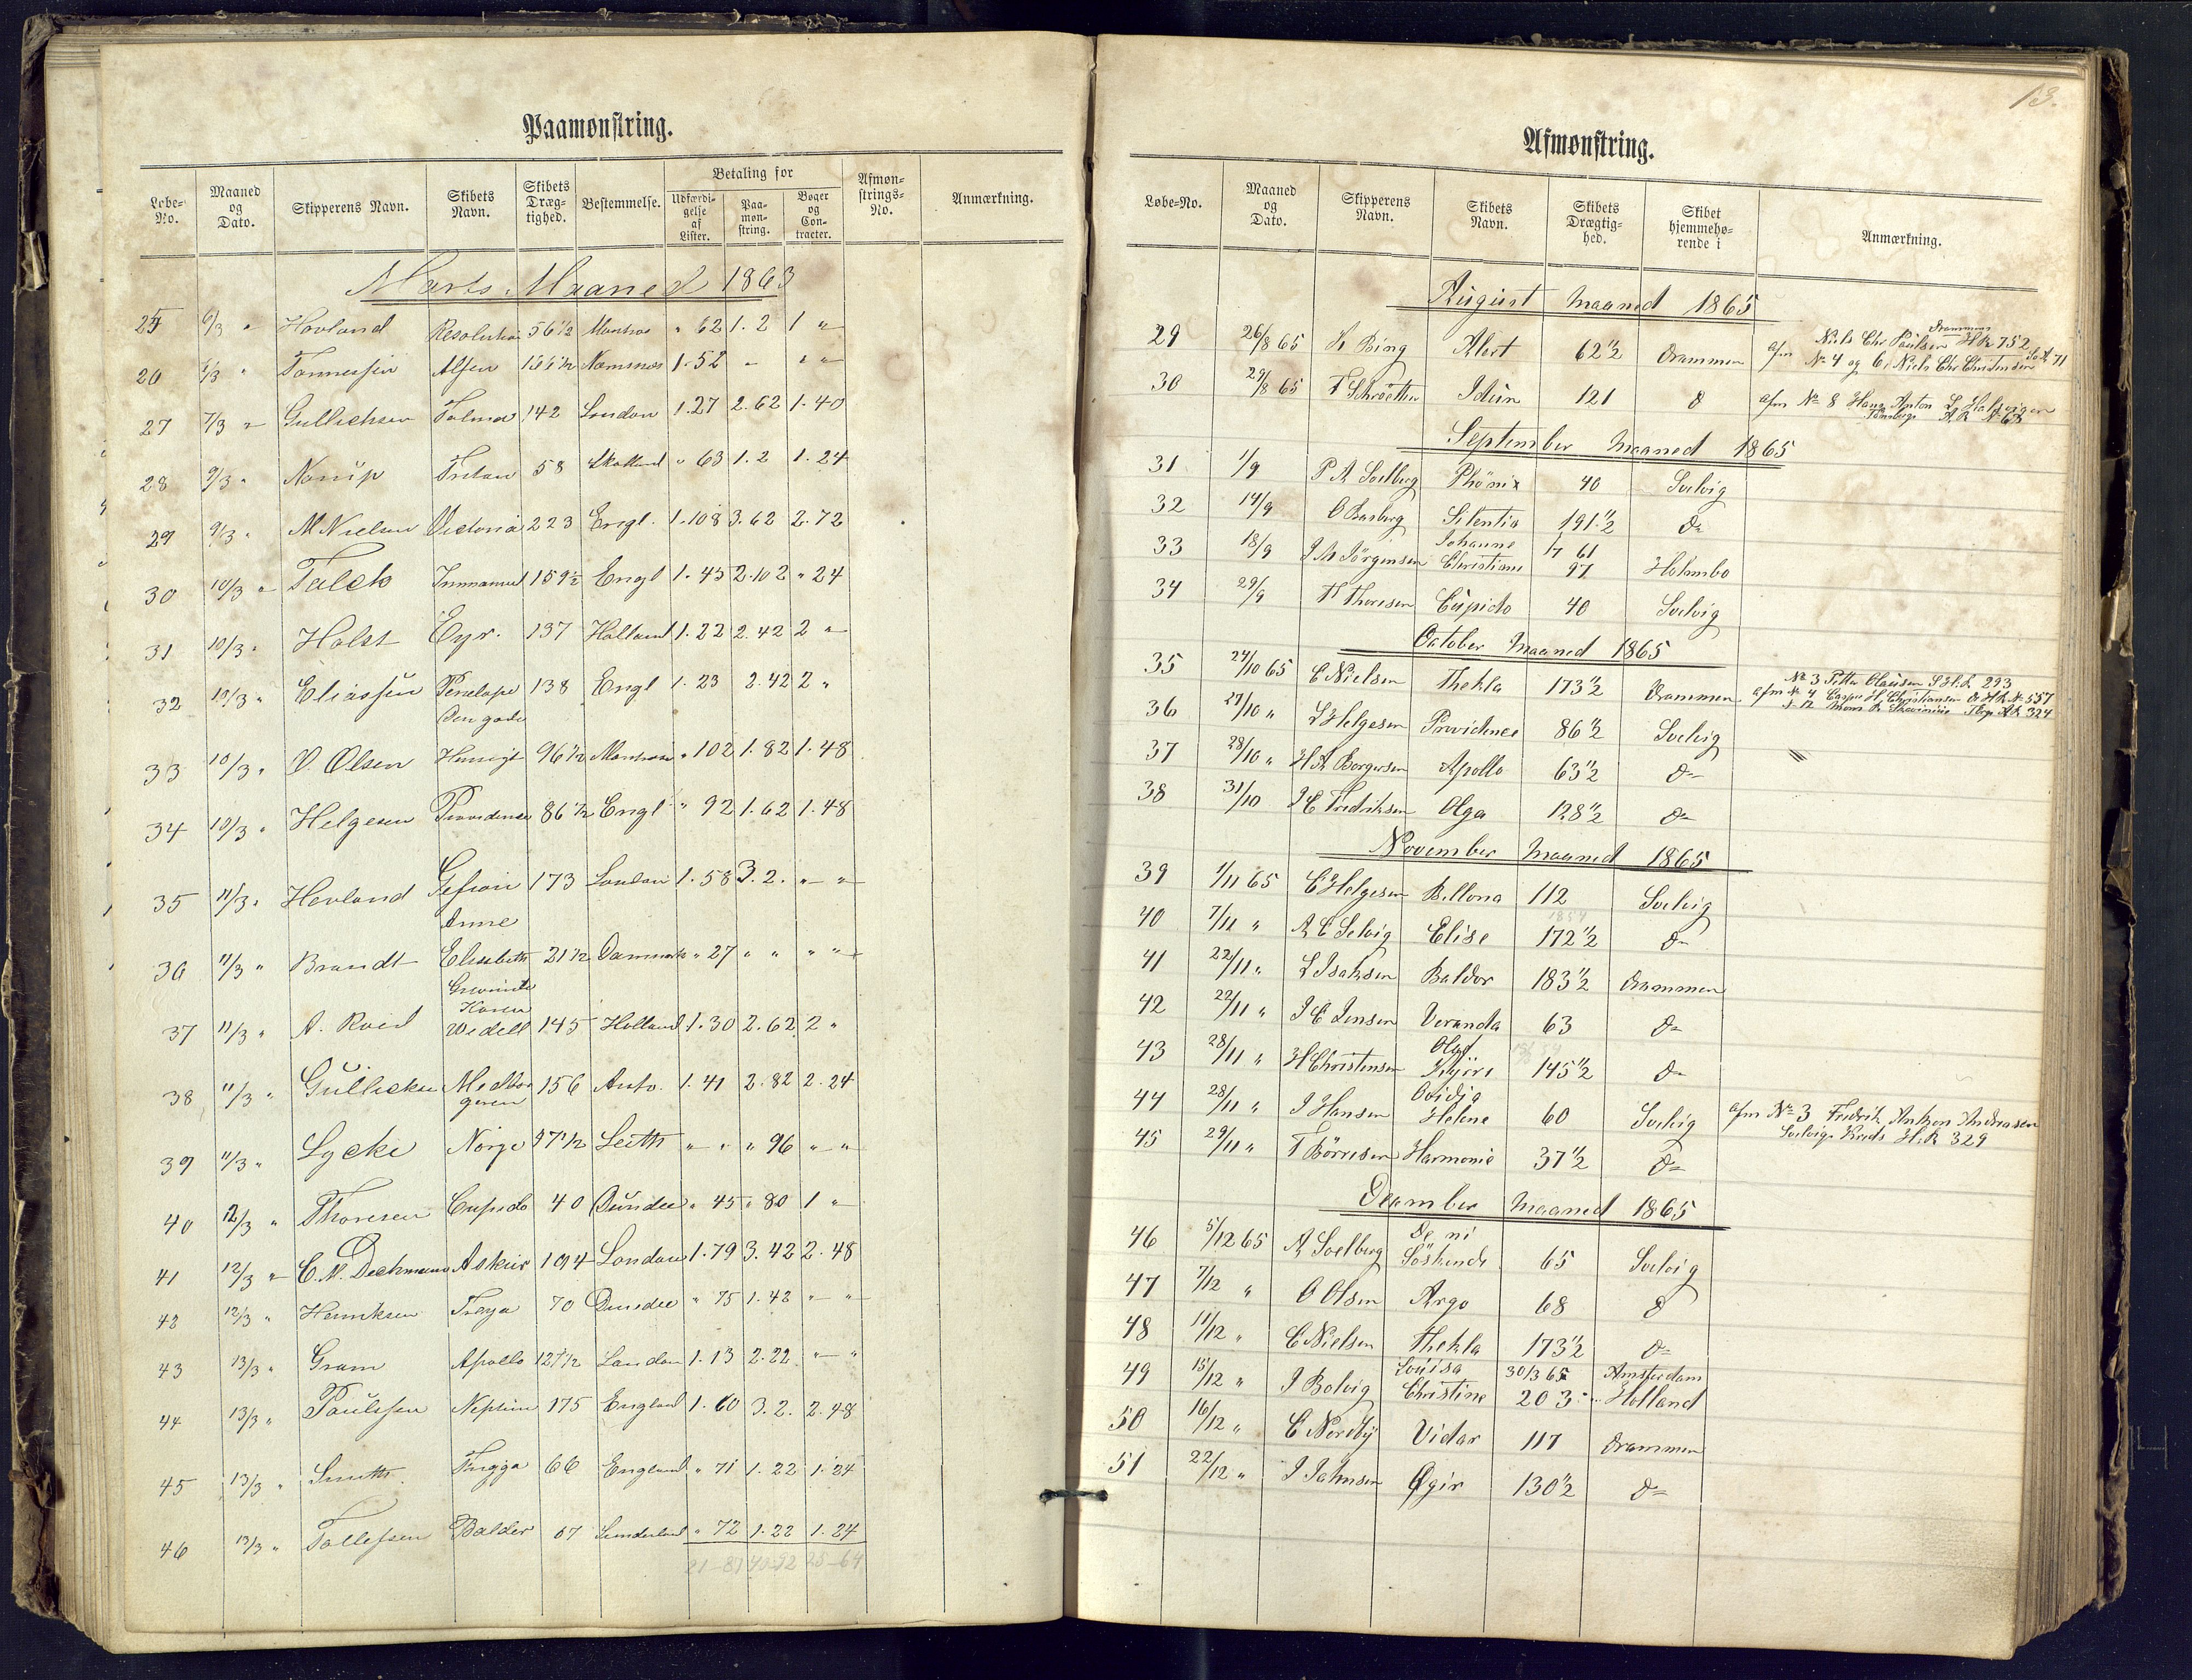 Paamønstring.
Løbe-No. Maaned og Dato. Skipperens Navn. Skibets Navn. Skibets Dræg-tighed. Bestemmelse. Betaling for Udfærdi-gelse af Lister. Paa-møn-string. Bøger og Con-tracter. Afmøn-strings-No. Anmærkning.
Marts Maaned 1863
25 6/3 " Hovland Resolution 56 1/2 " 62 1. 2 1 "
26 7/3 " Tønnesen 1. 52 " " "
27 7/3 " Gullichsen Talma 142 London 1. 27 2. 62 1. 40
28 9/3 " Norup Triton 58 Skotland " 63 1. 2 1. 24
29 9/3 " M Nielsen Victoria 223 Engl. 1. 108 3. 62 2. 72
30 10/3 " Falck Immanuel 159 1/2 Engl 1. 45 2. 102 " 24
31 10/3 " Holst Eyr. 137 Holland 1. 22 2. 42 2 "
32 10/3 " Eliassen Penelope 138 Engl 1. 23 2. 42 2 "
33 10/3 " O. Olsen Den gode Hensigt 96 1/2 " 102 1. 82 1. 48
34 10/3 " Helgesen Providence 86 1/2 Engl " 92 1. 62 1. 48
35 11/3 " Hovland Gefion 173 London 1. 58 3. 2. " "
36 11/3 " Brandt Anne Elisabeth 21 1/2 Danmark " 27 " " " "
37 11/3 " A. Roed Grevinde Karen Wedell 145 Holland 1. 30 2. 62 2 "
38 11/3 " Gullicksen Medborgeren 156 1. 41 2. 82 2. 24
39 11/3 " Lycke Norge 97 1/2 Leith " " " 96 " "
40 12/3 " Thoresen Cupido 40 Dundee " 45 " 80 1 "
41 12/3 " C. M. Dechmann Askur 194 London 1. 79 3. 42 2. 48
42 12/3 " Henriksen Freya 70 Dundee " 75 1. 42 " "
43 13/3 " Gram Apollo 127 1/2 London 1. 13 2. 22 " "
44 13/3 " Paulssen Neptun 175 England 1. 60 3. 2. 2. 48
45 13/3 " Smith Frigga 66 England " 71 1. 22 1. 24
46 13/3 " Tollefsen Balder 67 Sunderland " 72 1. 22 1. 24
13.
Afmønstring.
Løbe-No. Maaned og Dato. Skipperens Navn. Skibets Navn. Skibets Drægtig-hed. Skibet hjemmehø-rende i Anmærkning.
August Maaned 1865
29 26/8 65 Bing Alert 62 1/2 Drammen afm Niels Chr Paulsen Drammens H R 752
No 4 og 6, Niels Chr Christensen 71
30 29/8 65 F Schröetter Idun 121 do afm No 8 Hans Anton
Tønsbergs A R No 628
September Maaned 1865
31 1/9 P A Soelberg Phönix 40 Svelvig
32 14/9 O Basberg Silentia 191 1/2 do
33 18/9 J M Jörgensen Johanne Christiane 17/61 97 Holmsbo
34 29/9 T Thoresen Cupido 40 Svelvig
October Maaned 1865
35 24/10 65 C Nielsen Thekla 173 1/2 Drammen afm No 3 Petter Olausen S H. R 293
No 4 Casper H. Christiansen D H R No 557
No 12 A R 324
36 27/10 " L Helgesen Providence 86 1/2 Svelvig
37 28/10 " H A Borgersen Apollo 63 1/2 do
38 31/10 J C Fredriksen Olga 128 1/2 do
November Maaned 1865
39 1/11 65 C Helgesen Bellona 112 Svelvig
40 7/11 " A C Selvig Elise 172 1/2 do
41 22/11 " L Isaksen Baldor 183 1/2 Drammen
42 22/11 " J C Jensen Veranda 63 do
43 28/11 " H Christensen Olaf Kyrre 145 1/2 do
44 28/11 " J Hansen Ovidia Helene 60 Svelvig afm No 3 Fredrik Anthon Andreasen
Svelvigs Kreds H. R 329
45 29/11 " T Börresen Harmonie 37 1/2 do
December Maaned 1865
46 5/12 65 A Soelberg De ni Söskende 65 Svelvig
47 7/12 " O Olsen Argo 68 do
48 11/12 " C Nielsen Thekla 173 1/2 do
49 15/12 " J Bolvig Lovisa Christine 30/3 65 203 Amsterdam Holland
50 16/12 " C Nordby Vidar 117 Drammen
51 22/12 " J Jahnsen Ögir 130 1/2 do